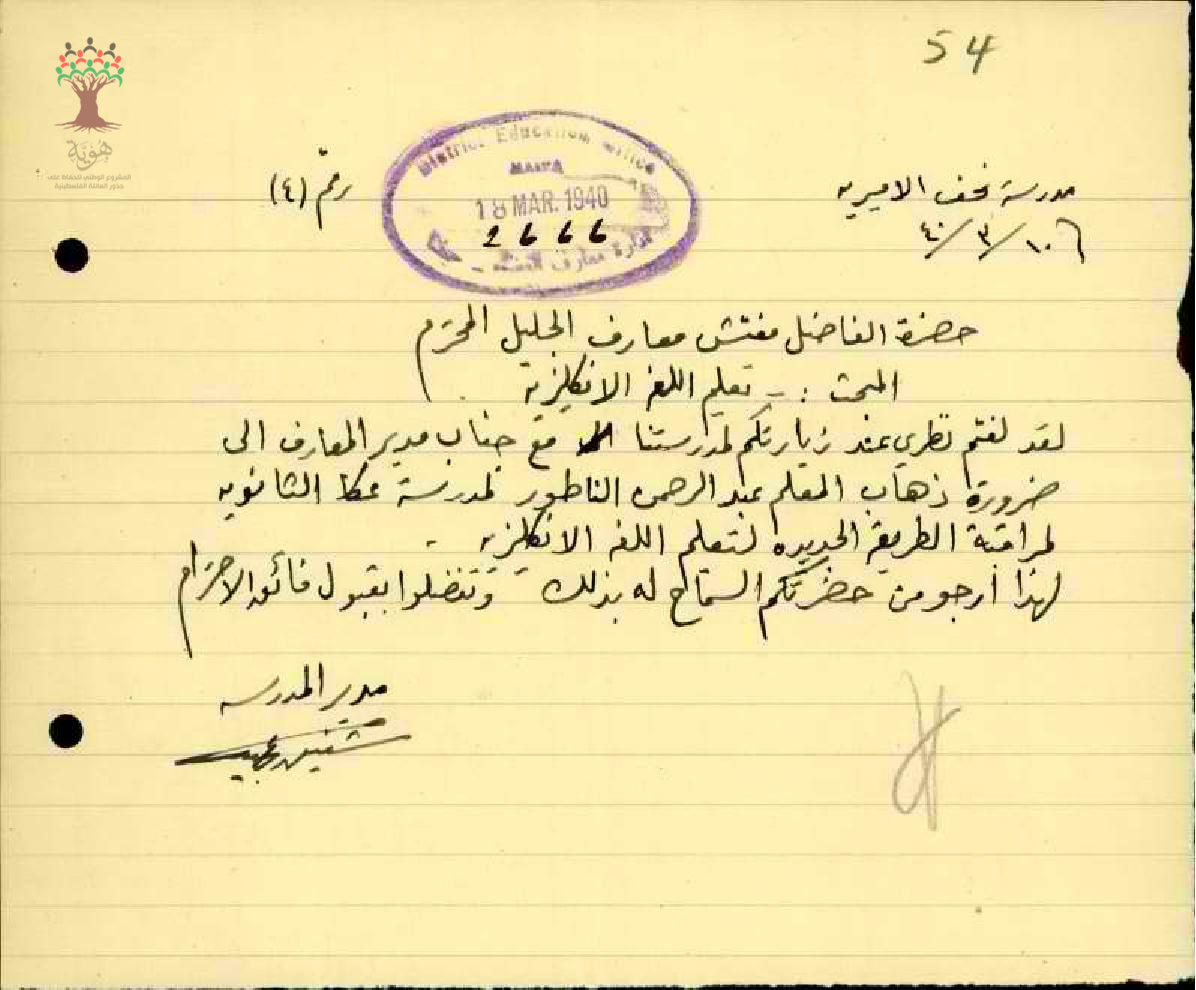 54
هوية
المشروع الوطني للحفاظ على
جذور العائلة الفلسطينية
District Education Office
HAIFA
18 MAR. 1940
2666
ادارة معارف
مدرسة نحف الاميريه
رقم (٤)
٤٠/٣/١٠
حضرة الفاضل مفتش معارف الجليل المحترم
المبحث :- تعليم اللغه الانكليزية
لقد لفتم نظري عند زيارتكم لمدرستنا مع جناب مدير المعارف الى
ضرورة ذهاب المعلم عبد الرحمن الناطور لمدرسة عكا الثانويه
لمراقبة الطريقه الجديده لتعليم اللغه الانكلزيه -
لهذا أرجو من حضرتكم السماح له بذلك وتفضلوا بقبول فائق الاحترام
مدير المدرسه